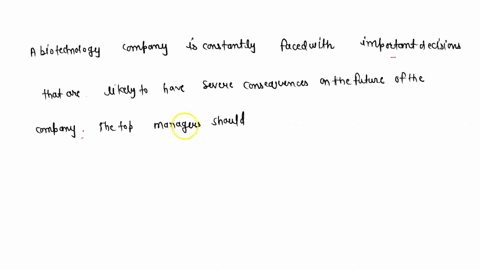 A biotechnology company is constantly faced with important decisions
that are likely to have severe consequences on the future of the
company. The top managers should